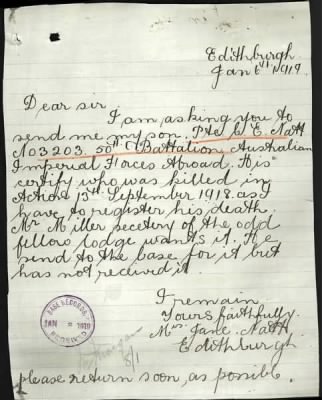 Edithburgh
Jan 6th 1919
Dear sir
I am asking you to
send me my son. Pte C E. Natt
No 3203. 50th Battalion Australian
Imperial Forces Abroad. His
certify who was killed in
Action 13th September 1918. as I
have to register his death.
Mr Miller secetery of the odd
fellows lodge wants it. He
send to the base for it but
has not received it.
I remain
Yours faithfully.
Mrs Jane Natt
Edithburgh
BASE RECORDS
JAN 1919
RECEIVED
please return soon, as possible.